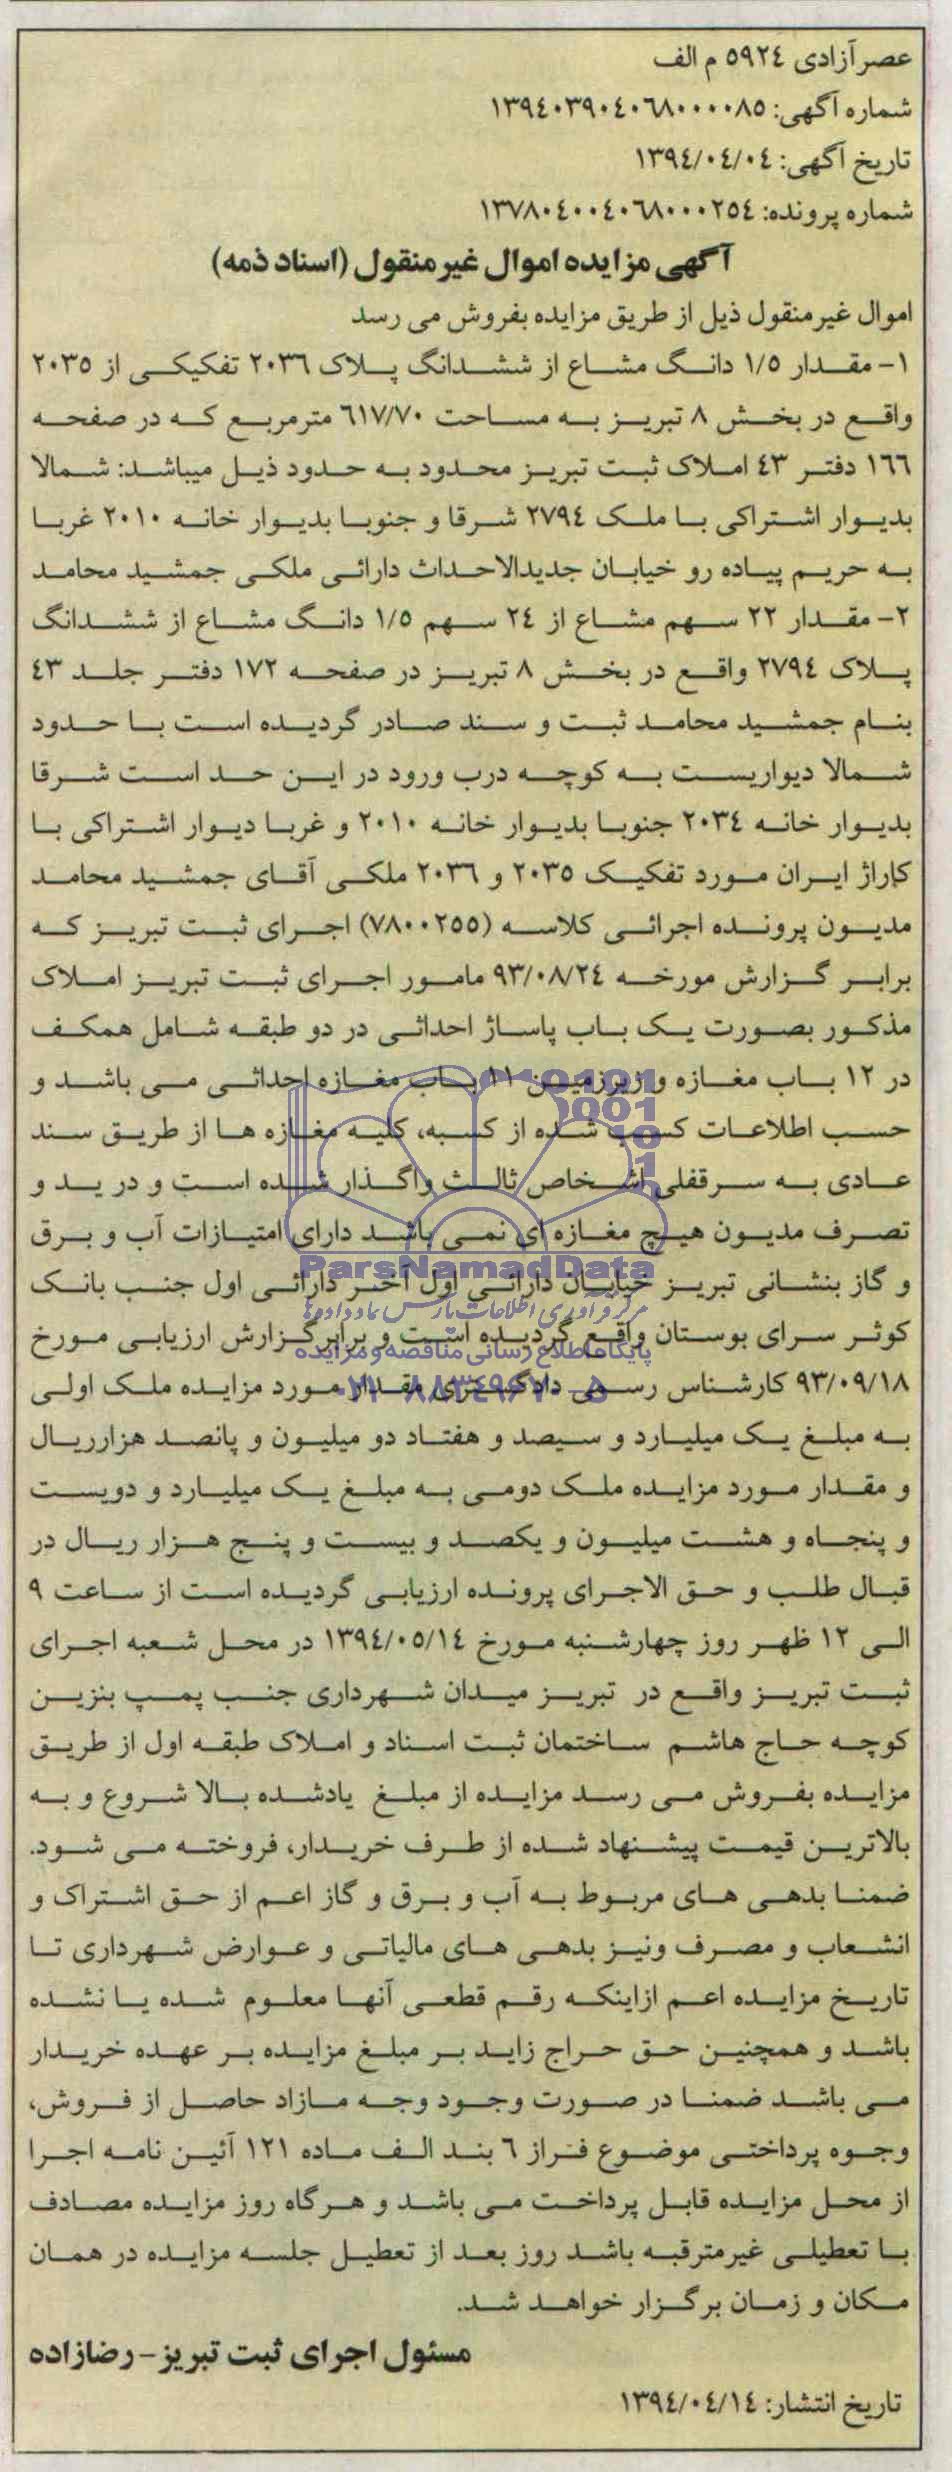 عصرآزادی ٥٩٢٤ م الف
شماره آگهی: ١٣٩٤٠٣٩٠٤٠٦٨٠٠٠٠٨٥
تاریخ آگهی: ١٣٩٤/٠٤/٠٤
شماره پرونده: ١٣٧٨٠٤٠٠٤٠٦٨٠٠٠٢٥٤
آگهی مزایده اموال غیرمنقول (اسناد ذمه)
اموال غیرمنقول ذیل از طریق مزایده بفروش می رسد
١- مقدار ١/٥ دانگ مشاع از ششدانگ پلاک ٢٠٣٦ تفکیکی از ٢٠٣٥
واقع در بخش ٨ تبریز به مساحت ٦١٧/٧٠ مترمربع که در صفحه
١٦٦ دفتر ٤٣ املاک ثبت تبریز محدود به حدود ذیل میباشد: شمالا
بدیوار اشتراکی با ملک ٢٧٩٤ شرقا و جنوبا بدیوار خانه ٢٠١٠ غربا
به حریم پیاده رو خیابان جدیدالاحداث دارائی ملکی جمشید محامد
٢- مقدار ٢٢ سهم مشاع از ٢٤ سهم ١/٥ دانگ مشاع از ششدانگ
پلاک ٢٧٩٤ واقع در بخش ٨ تبریز در صفحه ١٧٢ دفتر جلد ٤٣
بنام جمشید محامد ثبت و سند صادر گردیده است با حدود
شمالا دیواریست به کوچه درب ورود در این حد است شرقا
بدیوار خانه ٢٠٣٤ جنوبا بدیوار خانه ٢٠١٠ و غربا دیوار اشتراکی با
کاراژ ایران مورد تفکیک ٢٠٣٥ و ٢٠٣٦ ملکی آقای جمشید محامد
مدیون پرونده اجرائی کلاسه (٧٨٠٠٢٥٥) اجرای ثبت تبریز که
برابر گزارش مورخه ٩٣/٠٨/٢٤ مامور اجرای ثبت تبریز املاک
مذکور بصورت یک باب پاساژ احداثی در دو طبقه شامل همکف
در ١٢ باب مغازه و زیرزمین ١١ باب مغازه احداثی می باشد و
حسب اطلاعات کسب شده از کسبه، کلیه مغازه ها از طریق سند
عادی به سرقفلی اشخاص ثالث واگذار شده است و در ید و
تصرف مدیون هیچ مغازه ای نمی باشد دارای امتیازات آب و برق
ParsNamadData
و گاز بنشانی تبریز خیابان دارائی اول آخر دارائی اول جنب بانک
مرکز فرآوری اطلاعات پارس نماد داده ها
کوثر سرای بوستان واقع گردیده است و برابر گزارش ارزیابی مورخ
پایگاه اطلاع رسانی مناقصه و مزایده
٩٣/٠٩/١٨ کارشناس رسمی دادگستری مقدار مورد مزایده ملک اولی
٠٢١-٨٨٣٤٩٦٧٠-٥
به مبلغ یک میلیارد و سیصد و هفتاد دو میلیون و پانصد هزارریال
و مقدار مورد مزایده ملک دومی به مبلغ یک میلیارد و دویست
و پنجاه و هشت میلیون و یکصد و بیست و پنج هزار ریال در
قبال طلب و حق الاجرای پرونده ارزیابی گردیده است از ساعت ٩
الی ١٢ ظهر روز چهارشنبه مورخ ١٣٩٤/٠٥/١٤ در محل شعبه اجرای
ثبت تبریز واقع در تبریز میدان شهرداری جنب پمپ بنزین
کوچه حاج هاشم ساختمان ثبت اسناد و املاک طبقه اول از طریق
مزایده بفروش می رسد مزایده از مبلغ یادشده بالا شروع و به
بالاترین قیمت پیشنهاد شده از طرف خریدار، فروخته می شود.
ضمنا بدهی های مربوط به آب و برق و گاز اعم از حق اشتراک و
انشعاب و مصرف ونیز بدهی های مالیاتی و عوارض شهرداری تا
تاریخ مزایده اعم ازاینکه رقم قطعی آنها معلوم شده یا نشده
باشد و همچنین حق حراج زاید بر مبلغ مزایده بر عهده خریدار
می باشد ضمنا در صورت وجود وجه مازاد حاصل از فروش،
وجوه پرداختی موضوع فراز ٦ بند الف ماده ١٢١ آئین نامه اجرا
از محل مزایده قابل پرداخت می باشد و هرگاه روز مزایده مصادف
با تعطیلی غیرمترقبه باشد روز بعد از تعطیل جلسه مزایده در همان
مکان و زمان برگزار خواهد شد.
مسئول اجرای ثبت تبریز- رضازاده
تاریخ انتشار: ١٣٩٤/٠٤/١٤